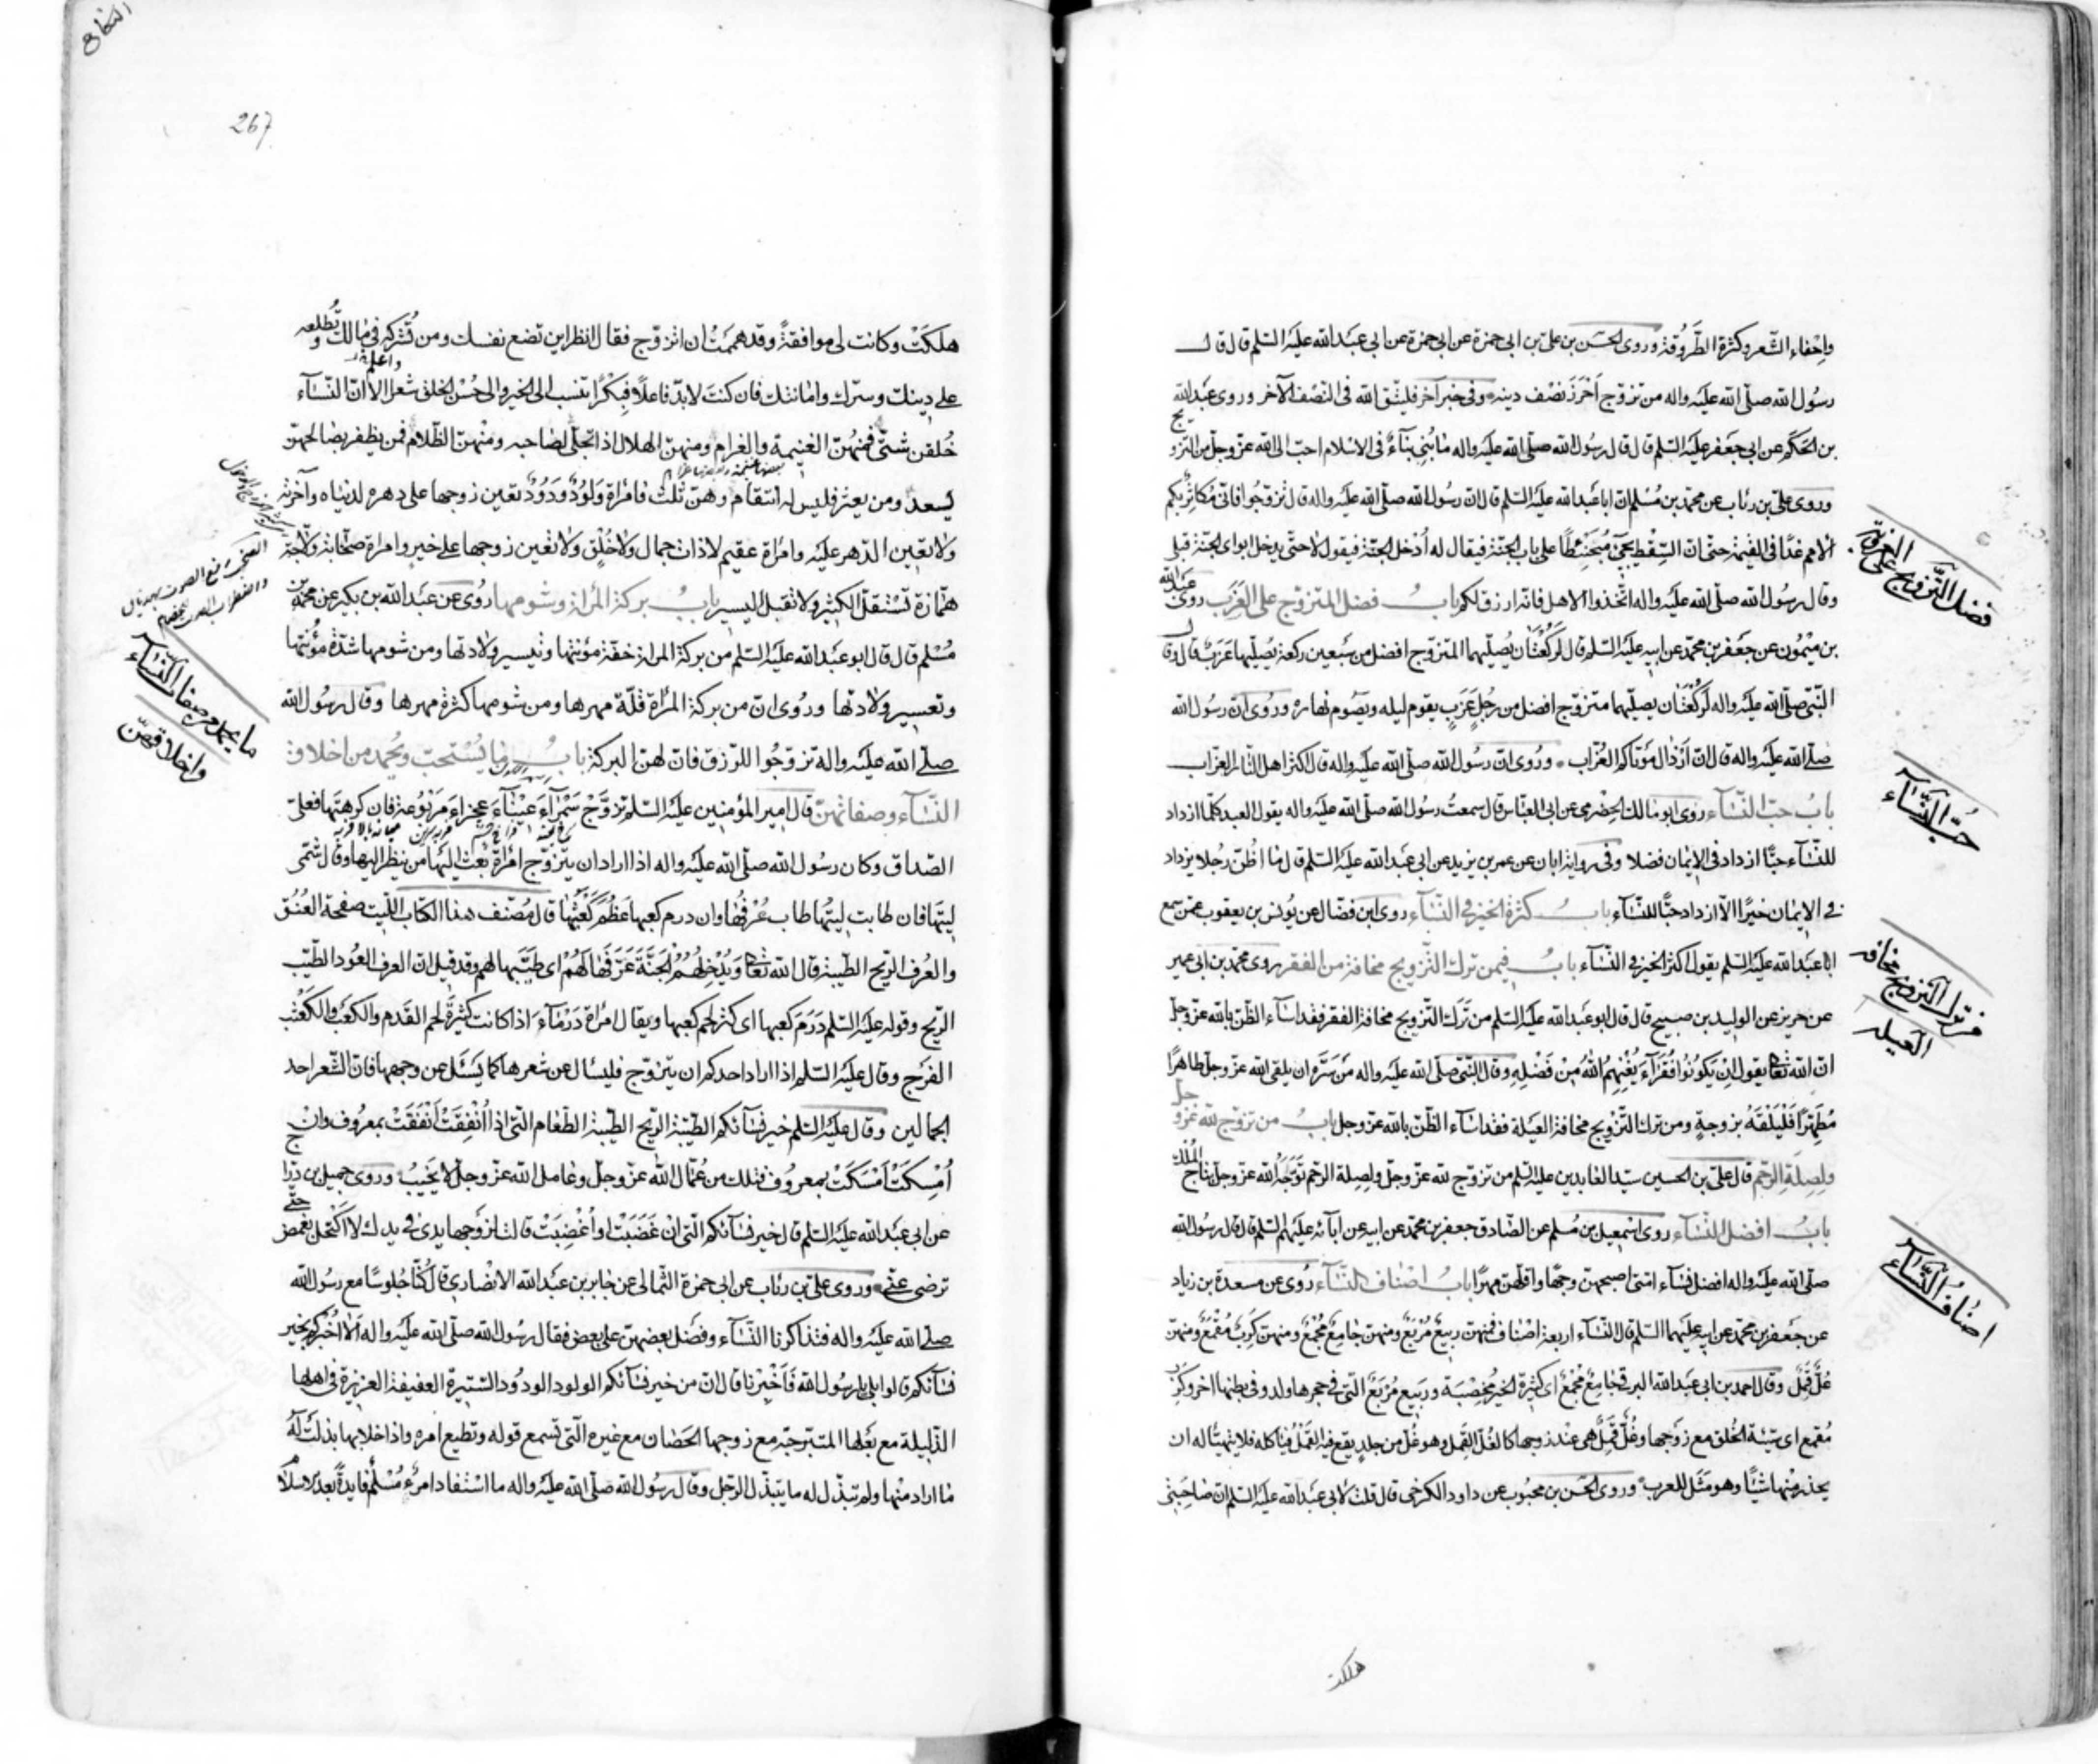 واحفاء الشعر وكثرة الطروقة وروى الحسن بن على بن ابى حمزة عن ابى حمزة عن ابى عبد الله عليه السلم قال قال
رسول الله صلى الله عليه واله من تزوج احرز نصف دينه وفى خبر آخر فليتق الله فى النصف الآخر وروى عبد الله
بن الحكم عن ابى جعفر عليه السلم قال قال رسول الله صلى الله عليه واله ما بُنِىَ بناءٌ فى الاسلام احب الى الله عز وجل من التزويج
وروى على بن رئاب عن محمد بن مسلم ان ابا عبد الله عليه السلم قال ان رسول الله صلى الله عليه واله قال تزوجوا فانى مُكاثِرٌ بكم
الامم غدًا فى القيمة حتى ان السِّقط يجىء مُحبَنطِئًا على باب الجنة فيقال له اُدخل الجنة فيقول لا حتى يدخل ابواى الجنة قبلى
وقال رسول الله صلى الله عليه واله اتخذوا الاهل فانه ارزق لكم باب فضل المتزوج على العزب روى عبد الله
بن ميمون عن جعفر بن محمد عن ابيه عليه السلم قال لركعتان يصليهما المتزوج افضل من سبعين ركعة يصليها عَزَبٌ قال وقال
النبى صلى الله عليه واله لركعتان يصليهما متزوج افضل من رجل عَزَبٍ يقوم ليله ويصوم نهاره وروى ان رسول الله
صلى الله عليه واله قال ان اَرذال موتاكم العُزّاب وروى ان رسول الله صلى الله عليه واله قال اكثر اهل النار العزاب
باب حب النساء روى ابو مالك الحضرمى عن ابى العباس قال سمعت رسول الله صلى الله عليه واله يقول العبد كلما ازداد
للنساء حبًّا ازداد فى الايمان فضلا وفى رواية ابان عن عمر بن يزيد عن ابى عبد الله عليه السلم قال ما اظن رجلا يزداد
فى الايمان خيرًا الا ازداد حبًّا للنساء باب كثرة الخير فى النساء روى ابن فضال عن يونس بن يعقوب عمن سمع
ابا عبد الله عليه السلم يقول اكثر الخير فى النساء باب فيمن ترك التزويج مخافة من الفقر روى محمد بن ابى عمير
عن حريز عن الوليد بن صبيح قال قال ابو عبد الله عليه السلم من ترك التزويج مخافة الفقر فقد اساء الظن بالله عز وجل
ان الله تعالى يقول اِنْ يَكُونُوا فُقَرَآءَ يُغْنِهِمُ اللهُ مِنْ فَضْلِهِ وقال النبى صلى الله عليه واله من سَرَّه ان يلقى الله عز وجل طاهرًا
مُطَهَّرًا فَلْيَلْقَهُ بزوجةٍ ومن ترك التزويج مخافة العيلة فقد اساء الظن بالله عز وجل باب من تزوج لله عز وجل
ولصلة الرحم قال على بن الحسين سيد العابدين عليه السلم من تزوج لله عز وجل ولصلة الرحم تَوَّجَهُ الله عز وجل بتاج الملك
باب افضل النساء روى اسمعيل بن مسلم عن الصادق جعفر بن محمد عن ابيه عن ابائه عليهم السلم قال قال رسول الله
صلى الله عليه واله افضل نساء امتى اصبحهن وجهًا واقلهن مهرًا باب اصناف النساء روى عن مسعدة بن زياد
عن جعفر بن محمد عن ابيه عليهما السلم قال النساء اربعة اصناف فمنهن ربيعٌ مُربَعٌ ومنهن جامعٌ مُجمَعٌ ومنهن كربٌ مُقمَعٌ ومنهن
غلٌّ قَمِلٌ وقال احمد بن ابى عبد الله البرقى جامعٌ مُجمَعٌ اى كثيرة الخير مُخصِبة وربيع مُربَعٌ التى فى حجرها ولد وفى بطنها اخر وكربٌ
مُقمع اى سيّئة الخُلق مع زوجها وغُلٌّ قَمِلٌ هى عند زوجها كالغُلّ القَمِل وهو غُلٌّ من جلدٍ يقع فيه القَمْلُ فيأكله فلا يتهيّأ له ان
يحذر منها شيئًا وهو مثل للعرب وروى الحسن بن محبوب عن داود الكرخى قال قلت لابى عبد الله عليه السلم ان صاحبتى
هلكت
فضل التزويج على العزوبة
حب النساء
من ترك التزويج مخافة
العيلة
اصناف النساء
النكاح
267
هلكَتْ وكانت لى موافقةً وقد هممتُ ان اتزوج فقال انظر اين تضع نفسك ومن تُشركه فى مالك وتُطلعه
على دينك وسرك وامانتك فان كنت لا بد فاعلًا فبِكرًا تنسب الى الخير والى حُسن الخلق شعر الا ان النساء
خُلقن شتى فمنهن الغنيمة والغرام ومنهن الهلال اذا تجلى لصاحبه ومنهن الظلام فمن يظفر بصالحهن
يسعد ومن يعثر فليس له انتقام وهن ثلث فامراة وَلُودٌ وَدُودٌ تعين زوجها على دهره لدنياه وآخرته
ولا تعين الدهر عليه وامرأة عقيم لا ذات جمال ولا خُلُق ولا تعين زوجها على خير وامراة صخّابة ولّاجة
همّازة تستقل الكثير ولا تقبل اليسير باب بركة المرأة وشومها روى عن عبد الله بن بكير عن محمد بن
مسلم قال قال ابو عبد الله عليه السلم من بركة المرأة خفة مؤنتها وتيسير ولادتها ومن شومها شدة مؤنتها
وتعسير ولادتها وروى ان من بركة المرأة قلة مهرها ومن شومها كثرة مهرها وقال رسول الله
صلى الله عليه واله تزوجوا للرزق فان لهن البركة باب ما يُستحب ويُحمد من اخلاق
النساء وصفاتهن قال امير المؤمنين عليه السلم تزوَّجْ سَمْراءَ عَيْنآءَ عجزاءَ مَربوعة فان كرهتَها فعلىّ
الصداق وكان رسول الله صلى الله عليه واله اذا اراد ان يتزوج امرأة بعث اليها من ينظر اليها وقال شمّى
لِيتَها فان طابت لِيتُها طاب عُرفُها وان درم كعبها عَظُمَ كَعْثَبُها قال مُصنف هذا الكتاب اللِّيت صفحة العُنُق
والعُرف الريح الطيبة قال الله تعالى وَيُدْخِلُهُمُ الْجَنَّةَ عَرَّفَهَا لَهُمْ اى طَيَّبها لهم وقد قيل ان العرف العُود الطيّب
الريح وقوله عليه السلم دَرَمَ كعبها اى كثر لحم كعبها ويقال امرأة دَرْماءَ اذا كانت كثيرة لحم القَدم والكعَب والكَعْثَب
الفرج وقال عليه السلم اذا اراد احدكم ان يتزوج فليسأل عن شعرها كما يسئل عن وجهها فان الشعر احد
الجمالين وقال عليه السلم خير نسائكم الطيبة الريح الطيبة الطعام التى اذا اُنفِقتْ اَنفقَتْ بمعروف وان
اُمسِكَتْ اَمْسَكَتْ بمعروف فتلك من عُمّال الله عز وجل وعامل الله عز وجل لا يخيب وروى جميل بن دراج
عن ابى عبد الله عليه السلم قال خير نسائكم التى ان غَضَبَتْ او اُغضِبَتْ قالت لزوجها يدى فى يدك لا اكتحل بغمض حتى
ترضى عنّى وروى على بن رئاب عن ابى حمزة الثمالى عن جابر بن عبد الله الانصارى قال كُنّا جُلوسًا مع رسول الله
صلى الله عليه واله فتذاكرنا النساء وفضل بعضهن على بعض فقال رسول الله صلى الله عليه واله اَلَا اُخبركم بخير
نسائكم قالوا بلى يا رسول الله فَاَخْبِرنا قال ان من خير نسائكم الولود الودود الستيرة العفيفة العزيزة فى اهلها
الذليلة مع بعلها المتبرجة مع زوجها الحَصان مع غيره التى تسمع قوله وتطيع امره واذا خلا بها بذلت له
ما اراد منها ولم تبذل له ما يتبذل الرجل وقال رسول الله صلى الله عليه واله ما استفاد امرءٌ مُسْلمٌ فايدةً بعد الاسلام
ما يحمد من صفات النساء
واخلاقهن